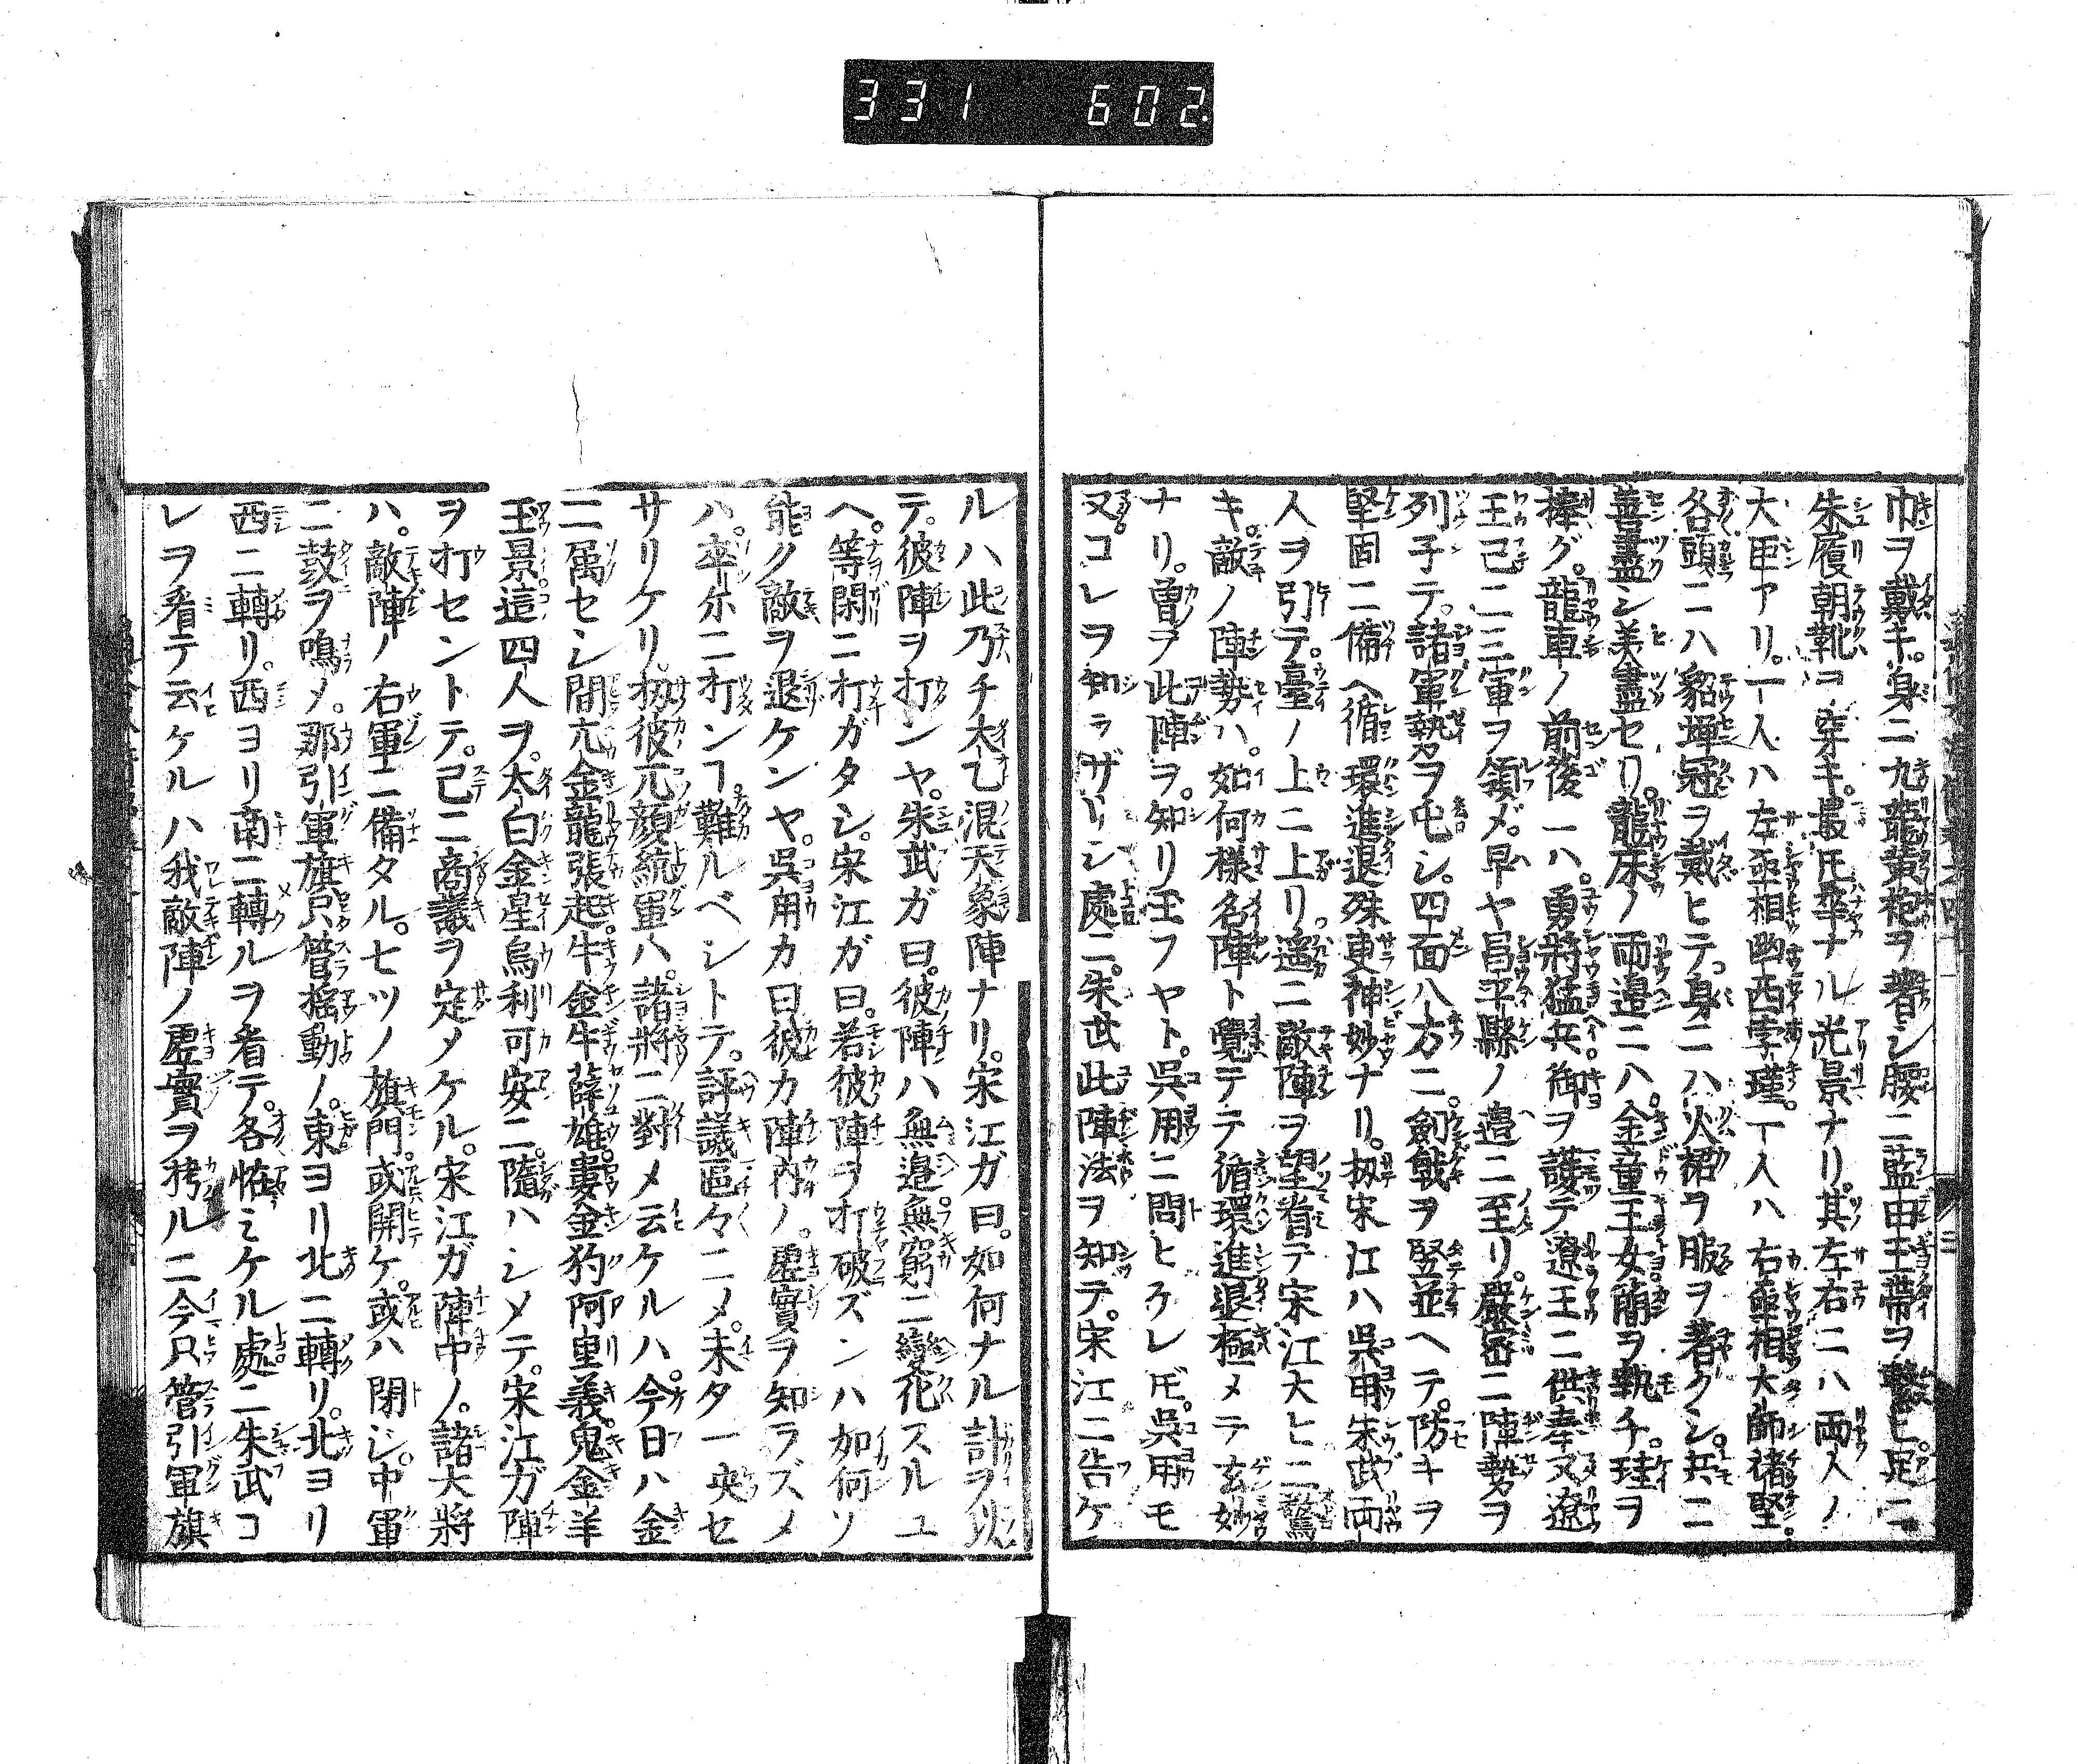 331 602.
巾ヲ戴キ。身ニ九龍黄袍ヲ著シ腰ニ藍田玉帶ヲ繫ヒ。足ニ
朱履朝靴ヲ穿キ。最𪜈華ナル光景ナリ。其左右ニハ兩人ノ
大臣アリ。一人ハ左丞相幽西孛瑾。一人ハ右丞相太師褚堅。
各頭ニハ貂蟬冠ヲ戴ヒテ。身ニハ火裙ヲ服ヲ著クシ。共ニ
善盡シ美盡セリ。龍床ノ兩邉ニハ。金童玉女簡ヲ執チ。珪ヲ
捧グ。龍車ノ前後ニハ。勇將猛兵御ヲ護テ遼王ニ供奉ス遼
王已ニ三軍ヲ領メ。早ヤ昌平縣ノ邉ニ至リ。嚴密ニ陣勢ヲ
列子テ。諸軍勢ヲ屯シ。四面八方ニ。劍戟ヲ竪並ヘテ。防キヲ
堅固ニ備ヘ循環進退殊更神妙ナリ。扨宋江ハ吳用朱武兩
人ヲ引テ。臺ノ上ニ上リ。遥ニ敵陣ヲ望看テ宋江大ヒニ驚
キ。敵ノ陣勢ハ。如何樣名陣ト覺テテ循環進退極メテ玄妙
ナリ。曽ヲ此陣ヲ。知リ玉フヤト。吳用ニ問ヒケレ𪜈。吳用モ
又。コレヲ知ラザリシ處ニ。朱武此陣法ヲ知テ。宋江ニ告ケ
ルハ此乃チ太乙混天象陣ナリ。宋江ガ曰。如何ナル計ヲ以
テ。彼陣ヲ打ンヤ。朱武ガ曰。彼陣ハ無邉無窮ニ變化スルユ
ヘ。等閑ニ打ガタシ。宋江ガ曰。若彼陣ヲ打破ズンハ如何ソ
能ク敵ヲ退ケンヤ。吳用カ曰彼カ陣內ノ。虛實ヲ知ラズメ
ハ。卒尓ニ打ンヿ難ルベシトテ。評議區々ニメ。未タ一决セ
サリケリ。扨彼兀顔統軍ハ。諸將ニ對メ云ケルハ。今日ハ金
ニ属セシ間亢金龍張起。牛金牛薛雄。婁金狗阿里義。鬼金羊
王景這四人ヲ。太白金星烏利可安ニ。隨ハシメテ。宋江ガ陣
ヲ打セントテ。已ニ商議ヲ定メケル。宋江ガ陣中ノ。諸大將
ハ。敵陣ノ右軍ニ備タル。七ツノ旗門。或開ケ。或ハ閉シ。中軍
ニ鼓ヲ鳴メ。那引軍旗只管搖動ノ。東ヨリ北ニ轉リ。北ヨリ
西ニ轉リ。西ヨリ南ニ轉ルヲ看テ。各恠ミケル處ニ朱武コ
レヲ看テ云ケルハ我敵陣ノ虛實ヲ栲ルニ今只管引軍旗